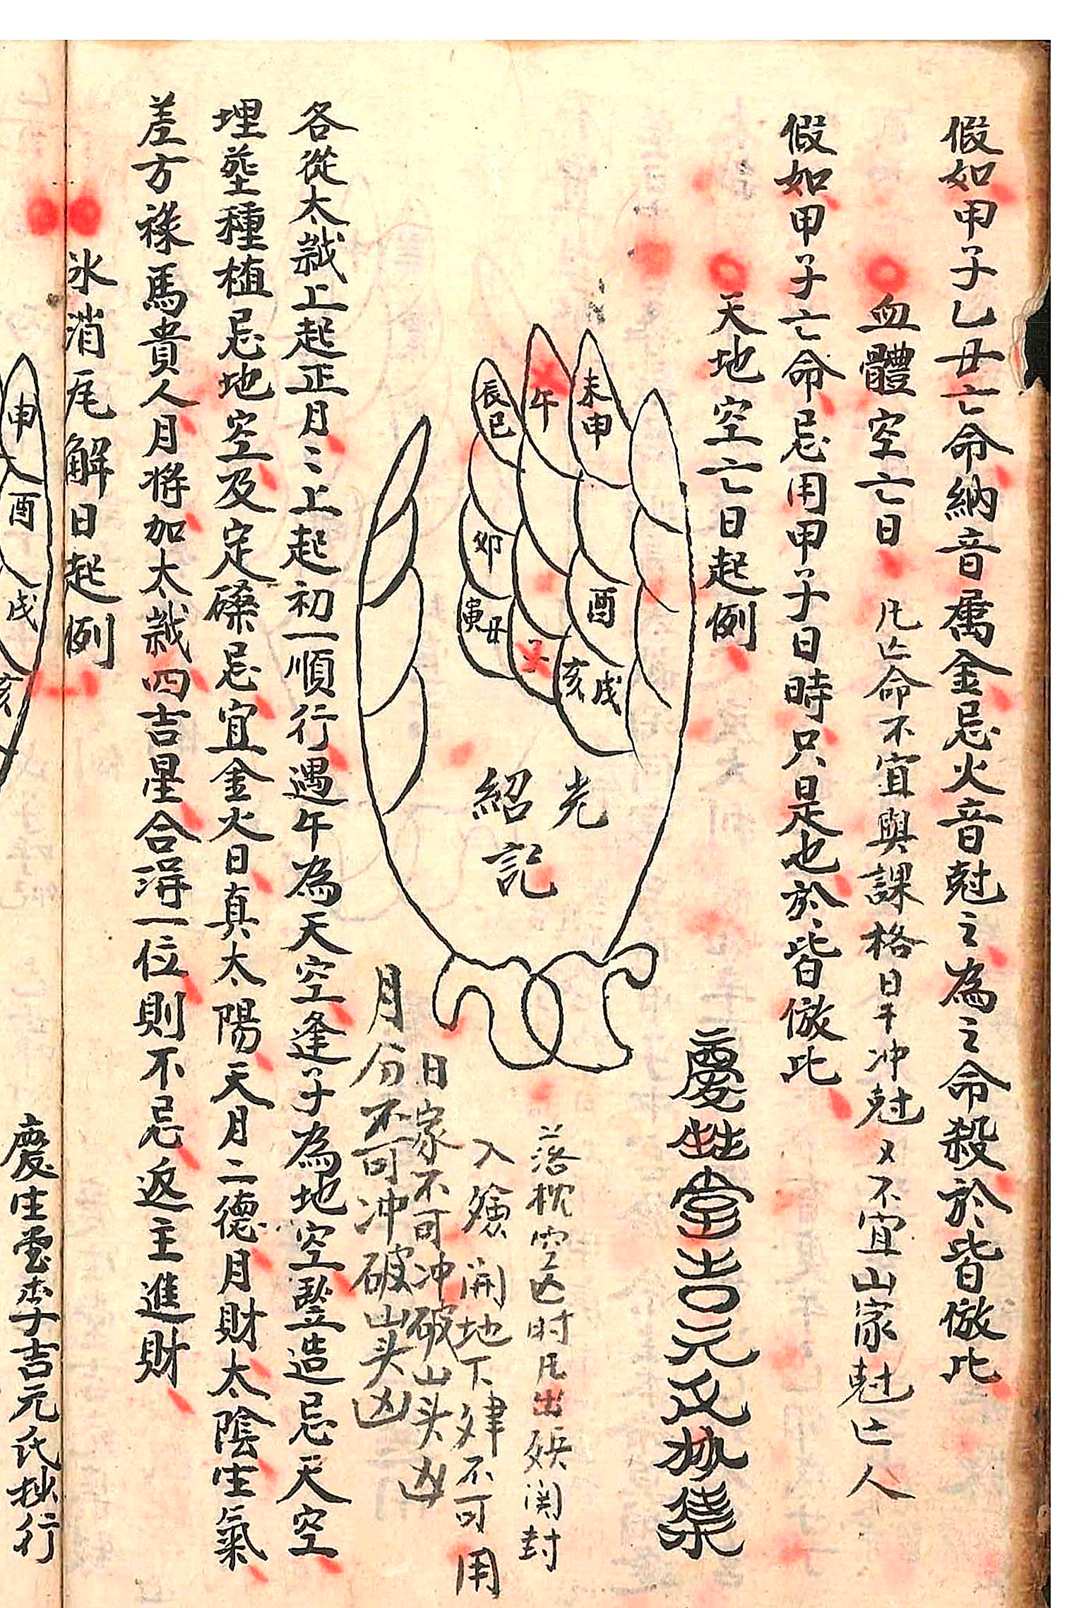 假如甲子乙丑亡命納音属金忌火音尅之為之命殺於皆倣此
血體空亡日 凡亡命不宜與課格日干冲尅又不宜山家尅亡人
假如甲子亡命忌用甲子日時只是也於皆倣此
天地空亡日起例
慶生堂吉元氏抄集
未申
午
辰巳
卯
寅丑
子
酉
戌亥
光紹記
落枕空亡时凡出殯開封
入殮開地下肂不可用
日家不可冲破山头凶
月分不可冲破山头凶
各從太歲上起正月々上起初一順行遇午為天空逢子為地空豎造忌天空
埋塟種植忌地空及定磉忌宜金火日真太陽天月二德月財太陰生氣
差方祿馬貴人月将加太歲四吉星合淂一位則不忌返主進財
氷消尾解日起例
慶生堂李吉元氏抄行
申
酉
戌
亥